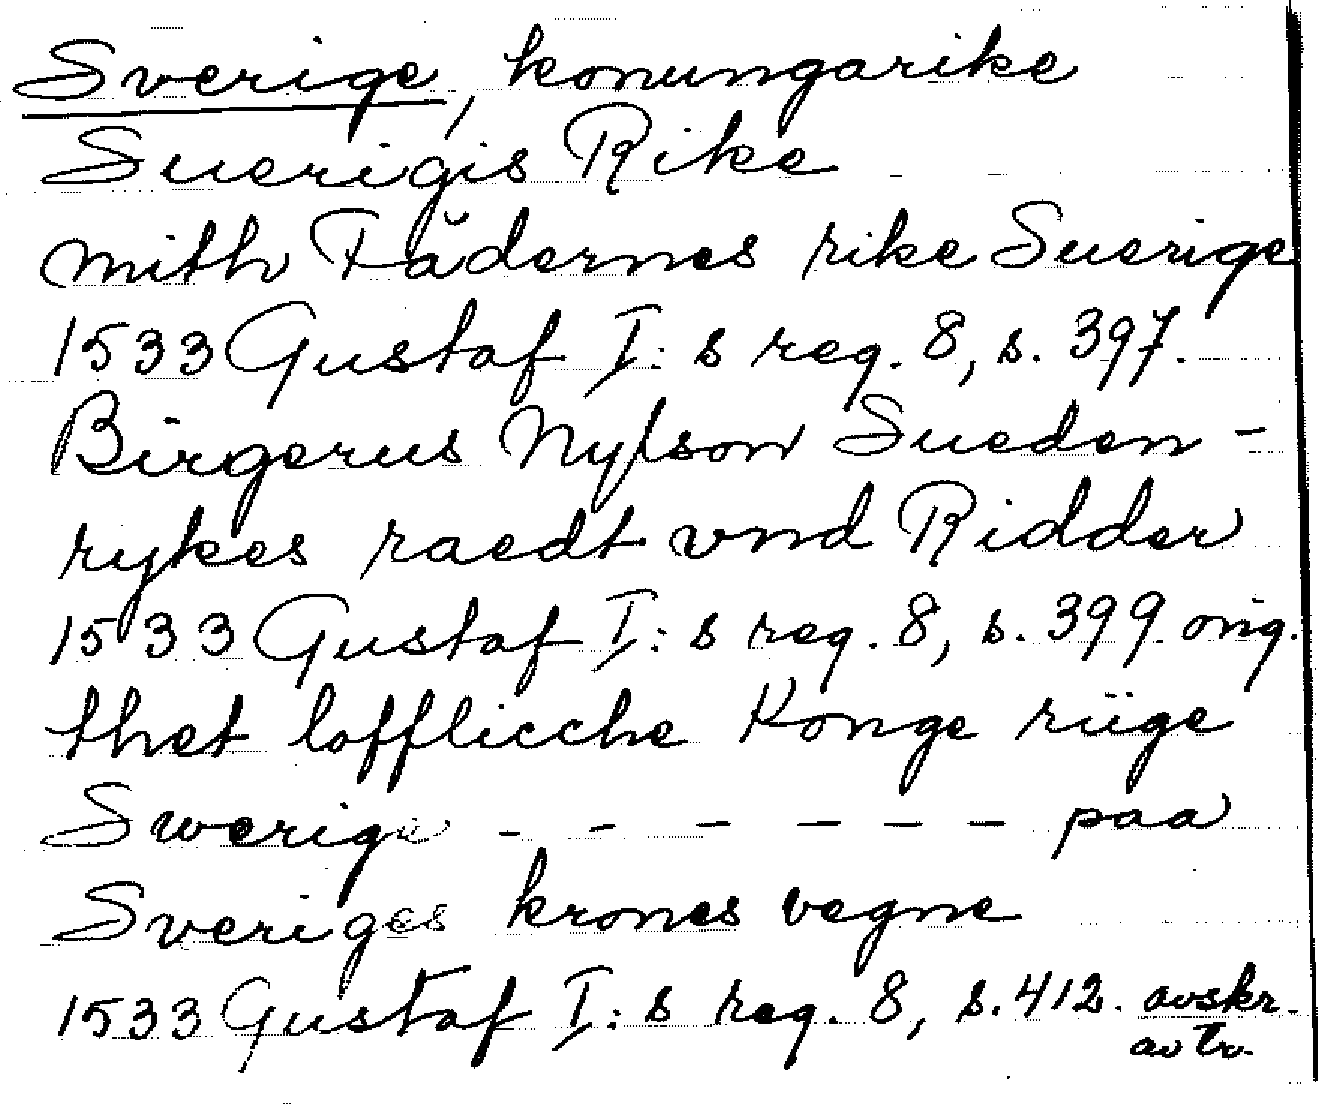 Sverige, konungarike
Suerigis Rike
mith Fădernes rike Suerige
1533 Gustaf I:s reg. 8, s. 397.
Birgerus Nylson Sueden-
rykes raedt vnd Ridder
1533 Gustaf I:s reg. 8, s. 399 orig.
thet lofflicche Konge rüge
Swerige - - - - - - paa
Sveriges krones vegne
1533 Gustaf I:s reg. 8, s. 412. avskr.
av tr.